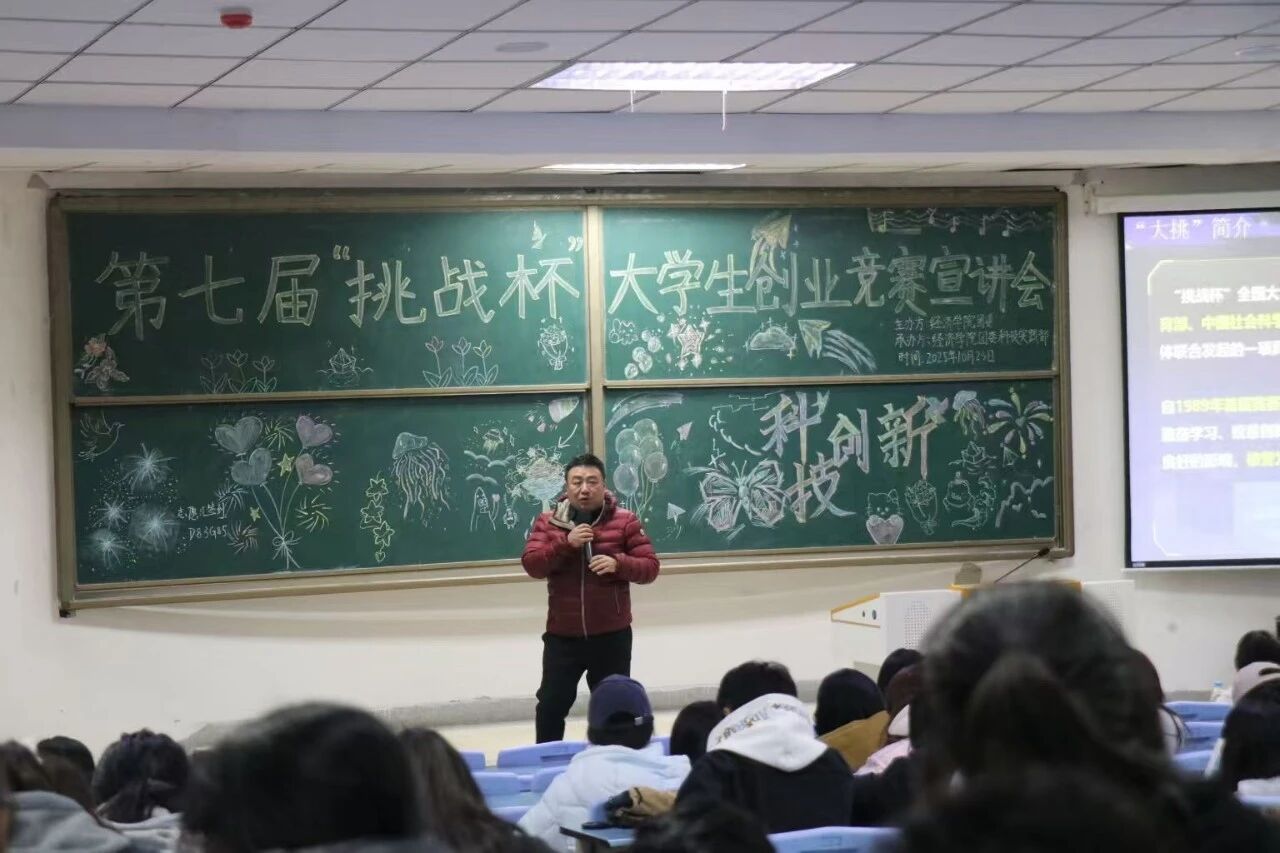 第七届“挑战杯”大学生创业竞赛宣讲会
主办方：经济学院团委
承办方：经济学院团委科技实践部
时间：2025年10月29日
科创新
技
D83G85
“大挑”简介
“挑战杯”全国大
育部、中国社会科学
体联合发起的一项
自1989年
良好的影响，